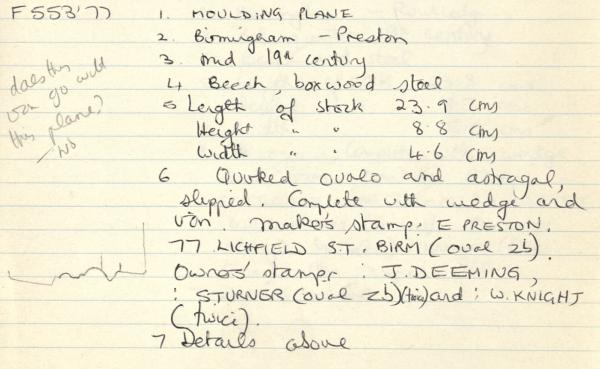 F553'77
1. MOULDING PLANE
2. Birmingham - Preston
3. Mid 19th century
4 Beech, boxwood steel
5 Length of stock 23.9 cms
Height " " 8.8 cms
Width " " 4.6 cms
6 Quirked ovolo and astragal,
slipped. Complete with wedge and
iron. Maker's stamp: E PRESTON.
77 LICHFIELD ST. BIRM (oval 2b).
Owners' stamps: J. DEEMING,
: STURNER (oval 2b) (twice) and : W. KNIGHT
(twice).
7 Details above
does this
iron go with
this plane?
- No